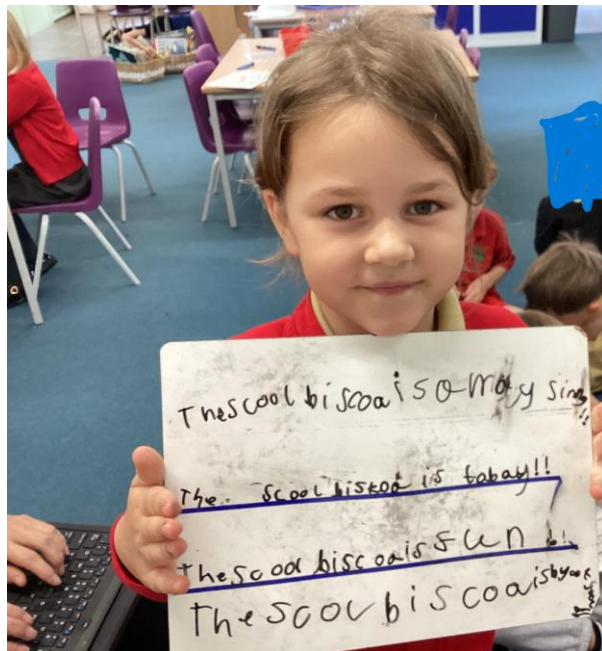 The scool biscoa is a may sing!!
The. scool biskoa is tobay!!
The scool biscoa is fun!!
The scool biscoa is by